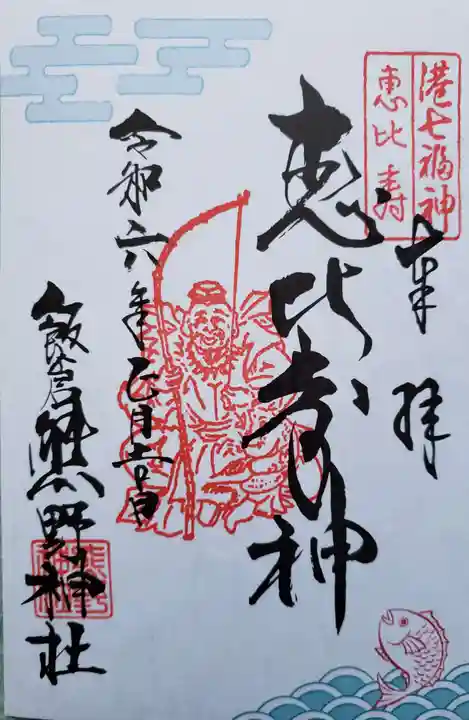 港七福神
恵比寿
奉拝
恵比寿神
令和六年正月十三日
飯倉熊野神社